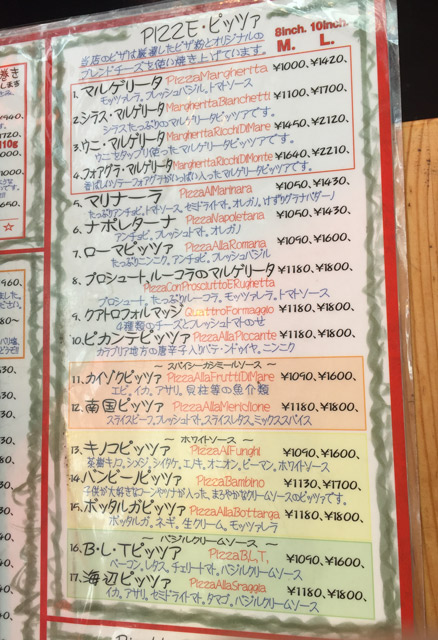 PIZZE・ピッツァ
当店のピザは厳選したピザ粉とオリジナルの
ブレンドチーズを使い焼き上げています。
8inch. 10inch.
M. L.
1. マルゲリータ PizzaMargherita ¥1000、¥1420、
モッツァレラ、フレッシュバジル、トマトソース
2. シラス・マルゲリータ MargheritaBianchetti ¥1100、¥1700、
シラスたっぷりのマルゲリータピッツァです。
3. ウニ・マルゲリータ MargheritaRicchiDiMare ¥1450、¥2120、
ウニをタップリ使ったマルゲリータピッツァです。
4. フォアグラ・マルゲリータ MargheritaRicchiDiMonte ¥1640、¥2210、
香ばしいソテーフォアグラがいっぱい入ったマルゲリータピッツァです。
5. マリナーラ PizzaAlMarinara ¥1050、¥1430、
たっぷりアンチョビ、トマトソース、セミドライトマト、オレガノ、けずりグラナパダーノ
6. ナポレターナ PizzaNapoletana ¥1050、¥1430、
アンチョビ、フレッシュトマト、オレガノ
7. ローマピッツァ PizzaAllaRomana ¥1090、¥1600、
たっぷりニンニク、アンチョビ、フレッシュバジル
8. プロシュート、ルーコラのマルゲリータ ¥1180、¥1800、
PizzaConProsciuttoERughetta
プロシュート、たっぷりルーコラ、モッツァレラ、トマトソース
9. クアトロフォルマッジ QuattroFormaggio ¥1180、¥1800、
4種類のチーズとフレッシュトマトのせ
10. ピカンテピッツァ PizzaAllaPiccante ¥1180、¥1800、
カラブリア地方の唐辛子入りパテ・ンドゥイヤ、ニンニク
～ スパイシーガシミールソース ～
11. カイゾクピッツァ PizzaAllaFruttiDiMare ¥1090、¥1600、
エビ、イカ、アサリ、貝柱等の魚介類
12. 南国ピッツァ PizzaAllaMeriglione ¥1180、¥1800、
スライスビーフ、フレッシュトマト、スライスレタス、ミックススパイス
～ ホワイトソース ～
13. キノコピッツァ PizzaAlFunghi ¥1090、¥1600、
茶樹キノコ、シメジ、シイタケ、エノキ、オニオン、ピーマン、ホワイトソース
14. バンビーピッツァ PizzaBambino ¥1130、¥1700、
子供が大好きなコーンやツナが入った、まろやかなクリームソースのピッツァです。
15. ボッタルガピッツァ PizzaAllaBottarga ¥1180、¥1800、
ボッタルガ、ネギ、生クリーム、モッツァレラ
～ バジルクリームソース ～
16. B・L・Tピッツァ PizzaB,L,T, ¥1090、¥1600、
ベーコン、レタス、チェリートマト、バジルクリームソース
17. 海辺ピッツァ PizzaAllaSraggia ¥1180、¥1800、
イカ、アサリ、セミドライトマト、タマゴ、バジルクリームソース